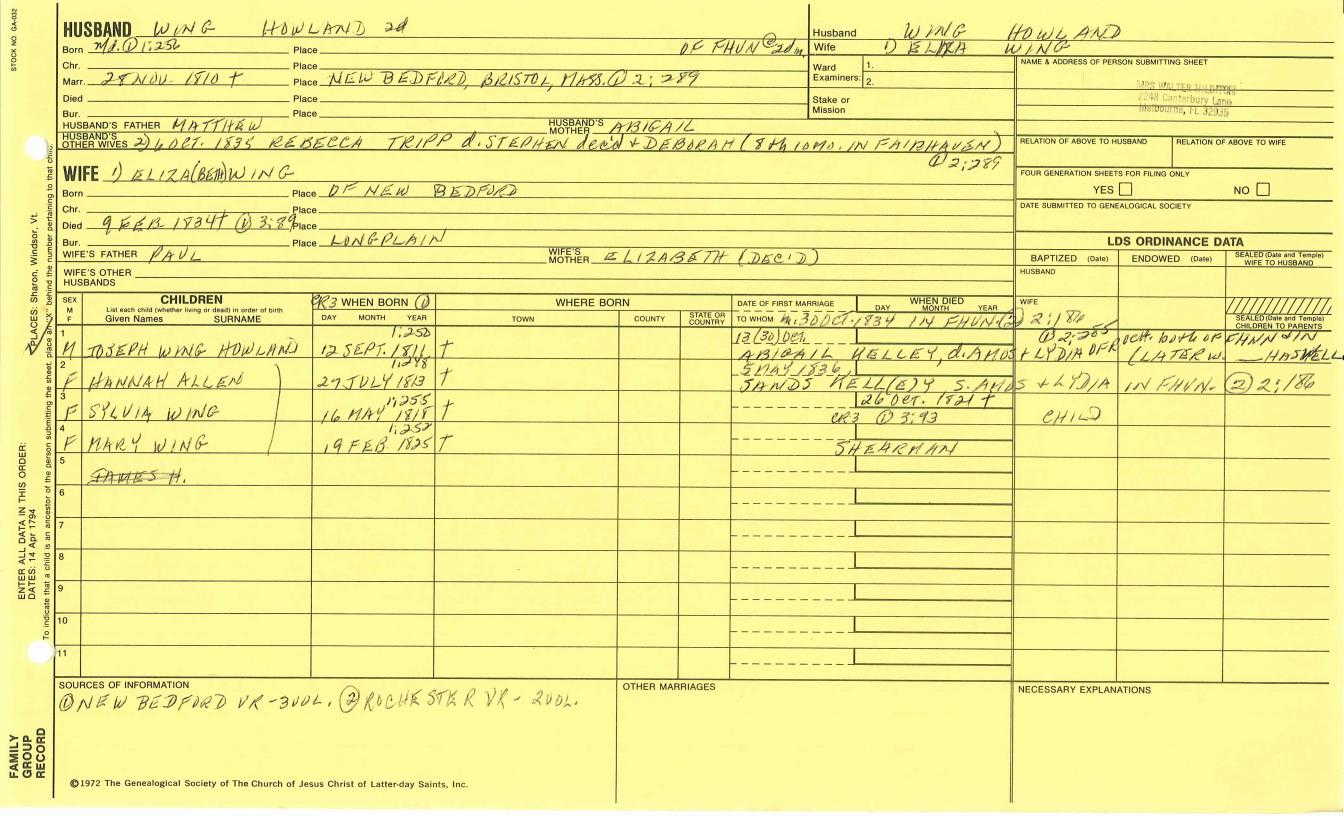 STOCK NO. GA-032
HUSBAND WING HOWLAND 2d
Born Md. ① 1:256 Place OF FHVN @ 2d m.
Chr. Place
Marr. 28 NOV. 1810 † Place NEW BEDFORD, BRISTOL, MASS. ① 2:289
Died Place
Bur. Place
HUSBAND'S FATHER MATTHEW HUSBAND'S MOTHER ABIGAIL
HUSBAND'S OTHER WIVES 2) 6 OCT. 1835 REBECCA TRIPP d. STEPHEN decd + DEBORAH (8th 10MO. IN FAIRHAVEN)
① 2:289
WIFE 1) ELIZA(BETH) WING
Born Place OF NEW BEDFORD
Chr. Place
Died 9 FEB 1834† ① 3:89 Place
Bur. Place LONGPLAIN
WIFE'S FATHER PAUL WIFE'S MOTHER ELIZABETH (DEC'D)
WIFE'S OTHER HUSBANDS
Husband WING HOWLAND
Wife 1) ELIZA WING
Ward Examiners: 1.
2.
Stake or Mission
NAME & ADDRESS OF PERSON SUBMITTING SHEET
2248 Canterbury Lane
Melbourne, FL 32935
RELATION OF ABOVE TO HUSBAND RELATION OF ABOVE TO WIFE
FOUR GENERATION SHEETS FOR FILING ONLY
YES NO
DATE SUBMITTED TO GENEALOGICAL SOCIETY
LDS ORDINANCE DATA
BAPTIZED (Date) ENDOWED (Date) SEALED (Date and Temple) WIFE TO HUSBAND
HUSBAND
WIFE
SEALED (Date and Temple) CHILDREN TO PARENTS
SEX M F
CHILDREN
List each child (whether living or dead) in order of birth
Given Names SURNAME
CR3 WHEN BORN ①
DAY MONTH YEAR
WHERE BORN
TOWN COUNTY STATE OR COUNTRY
DATE OF FIRST MARRIAGE
TO WHOM
WHEN DIED
DAY MONTH YEAR
m. 30 OCT. 1834 IN FHVN. ② 2:186
1 1:250 13 (30) Oct. ① 2:285
M JOSEPH WING HOWLAND 12 SEPT. 1811 † ABIGAIL KELLEY, d. AMOS + LYDIA OF ROCH. both of FHVN
(LATER W. __ HASKELL
2 1:248 5 MAY 1836,
F HANNAH ALLEN 27 JULY 1813 † SANDS KELL(E)Y S. AMOS + LYDIA IN FHVN. ② 2:186
3 1:255 26 OCT. 1821 †
F SYLVIA WING 16 MAY 1818 † CR3 ① 3:93 CHILD
4 1:252
F MARY WING 19 FEB 1825 † SHEARMAN
5
JAMES H.
6
7
8
9
10
11
SOURCES OF INFORMATION
① NEW BEDFORD VR - 3 VOL. ② ROCHESTER VR - 2 VOL.
OTHER MARRIAGES
NECESSARY EXPLANATIONS
©1972 The Genealogical Society of The Church of Jesus Christ of Latter-day Saints, Inc.
FAMILY GROUP RECORD
ENTER ALL DATA IN THIS ORDER:
DATES: 14 Apr 1794
PLACES: Sharon, Windsor, Vt.
To indicate that a child is an ancestor of the person submitting the sheet, place an "X" behind the number pertaining to that child.